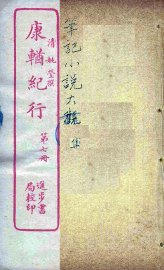 筆記小說大觀 集
清 姚瑩撰
康輶紀行
第七冊
進步書
局校印